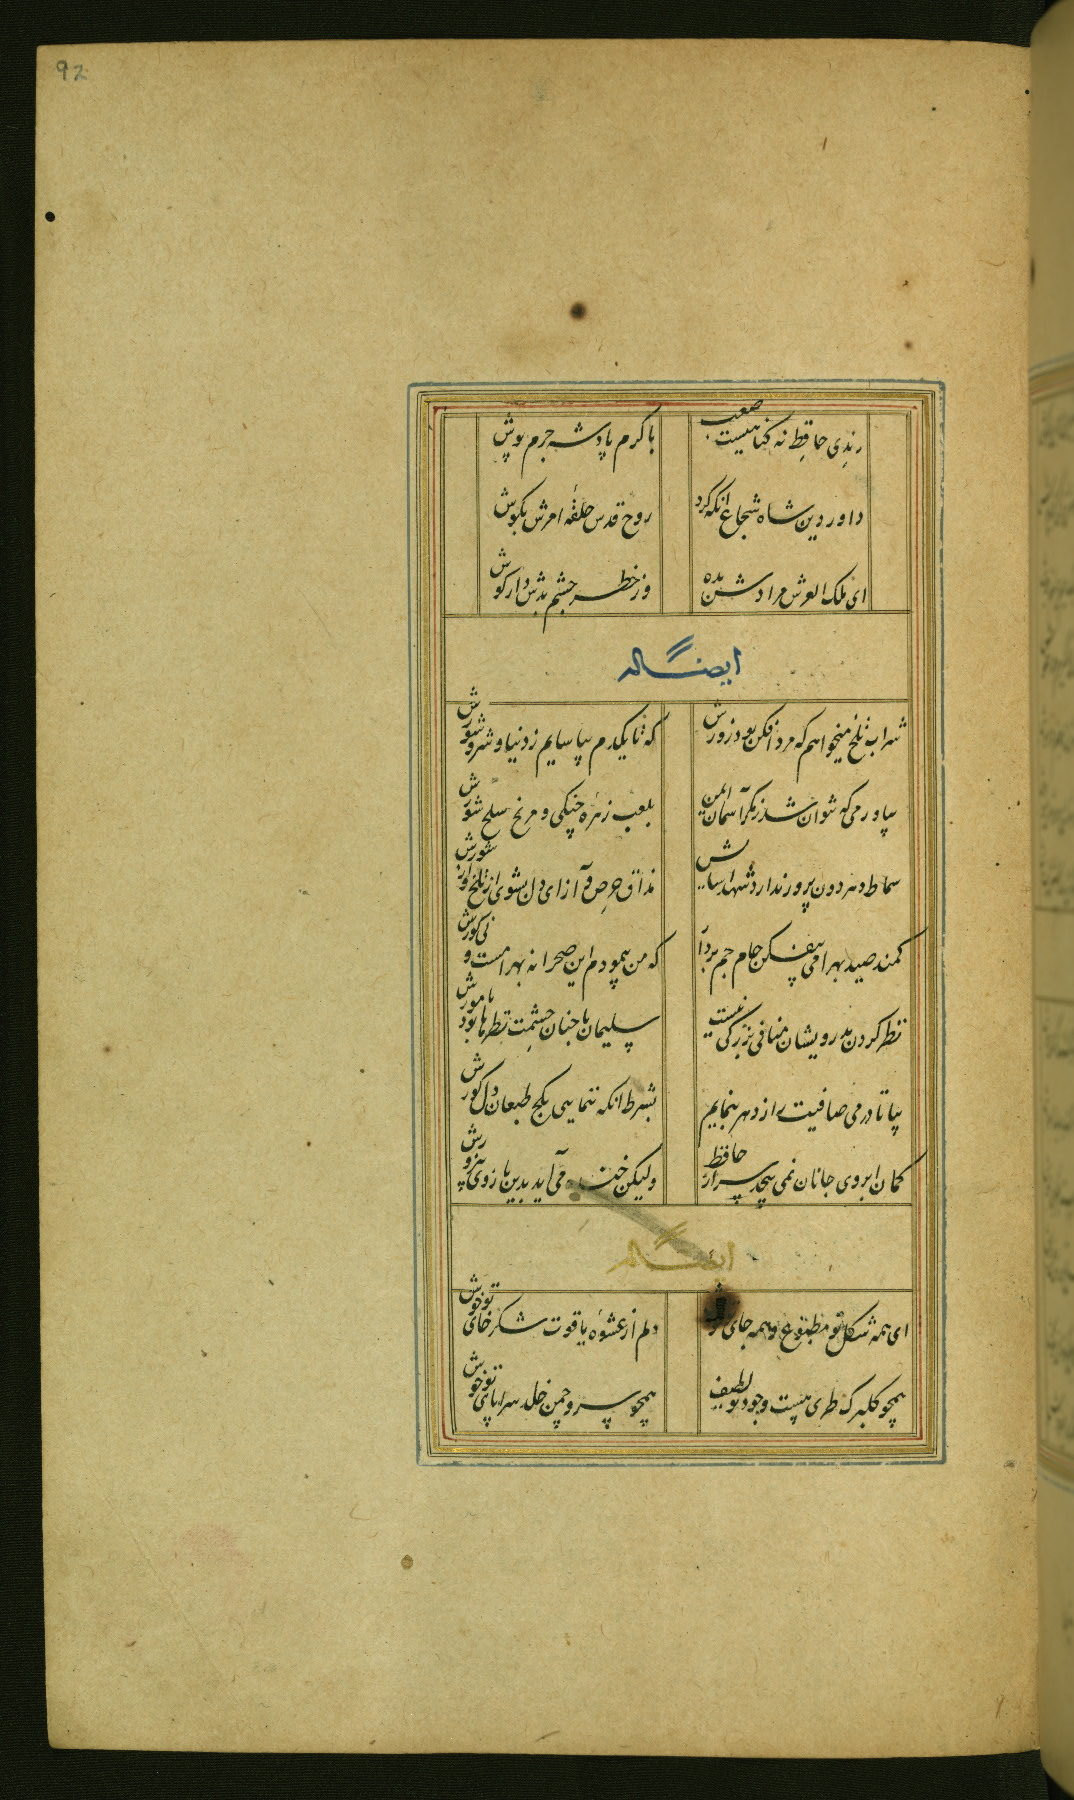 92
رندی حافظ نه گناهیست صعب با کرم پادشه جرم پوش
داور دین شاه شجاع انکه کرد روح قدس حلقهٔ امرش بگوش
ای ملک العرش مرادش بده وز خطر چشم بدش دار گوش
ایضا له
شراب تلخ میخواهم که مرد افکن بود زورش که تا یکدم بیاسایم ز دنیا و شر و شورش
بیاور می که نتوان شد ز مکر آسمان ایمن بلعب زهره چنگی و مریخ سلح شورش
سماط دهر دون پرور ندارد شهد آسایش مذاق حرص و آز ای دل بشوی از تلخ و از شورش
کمند صید بهرامی بیفکن جام جم بردار که من پیمودم این صحرا نه بهرامست و نی گورش
نظر کردن بدرویشان منافی بزرگی نیست سلیمان با چنان حشمت نظرها بود با مورش
بیا تا در می صافیت راز دهر بنمایم بشرط انکه ننمایی بکج طبعان دل کورش
کمان ابروی جانان نمی پیچد سر از حافظ ولیکن خنده می آید بدین بازوی بی زورش
ایضا له
ای همه شکل تو مطبوع و همه جای تو خوش دلم از عشوه یاقوت شکر خای تو خوش
همچو گلبرگ طری هست وجود تو لطیف همچو سرو چمن خلد سراپای تو خوش